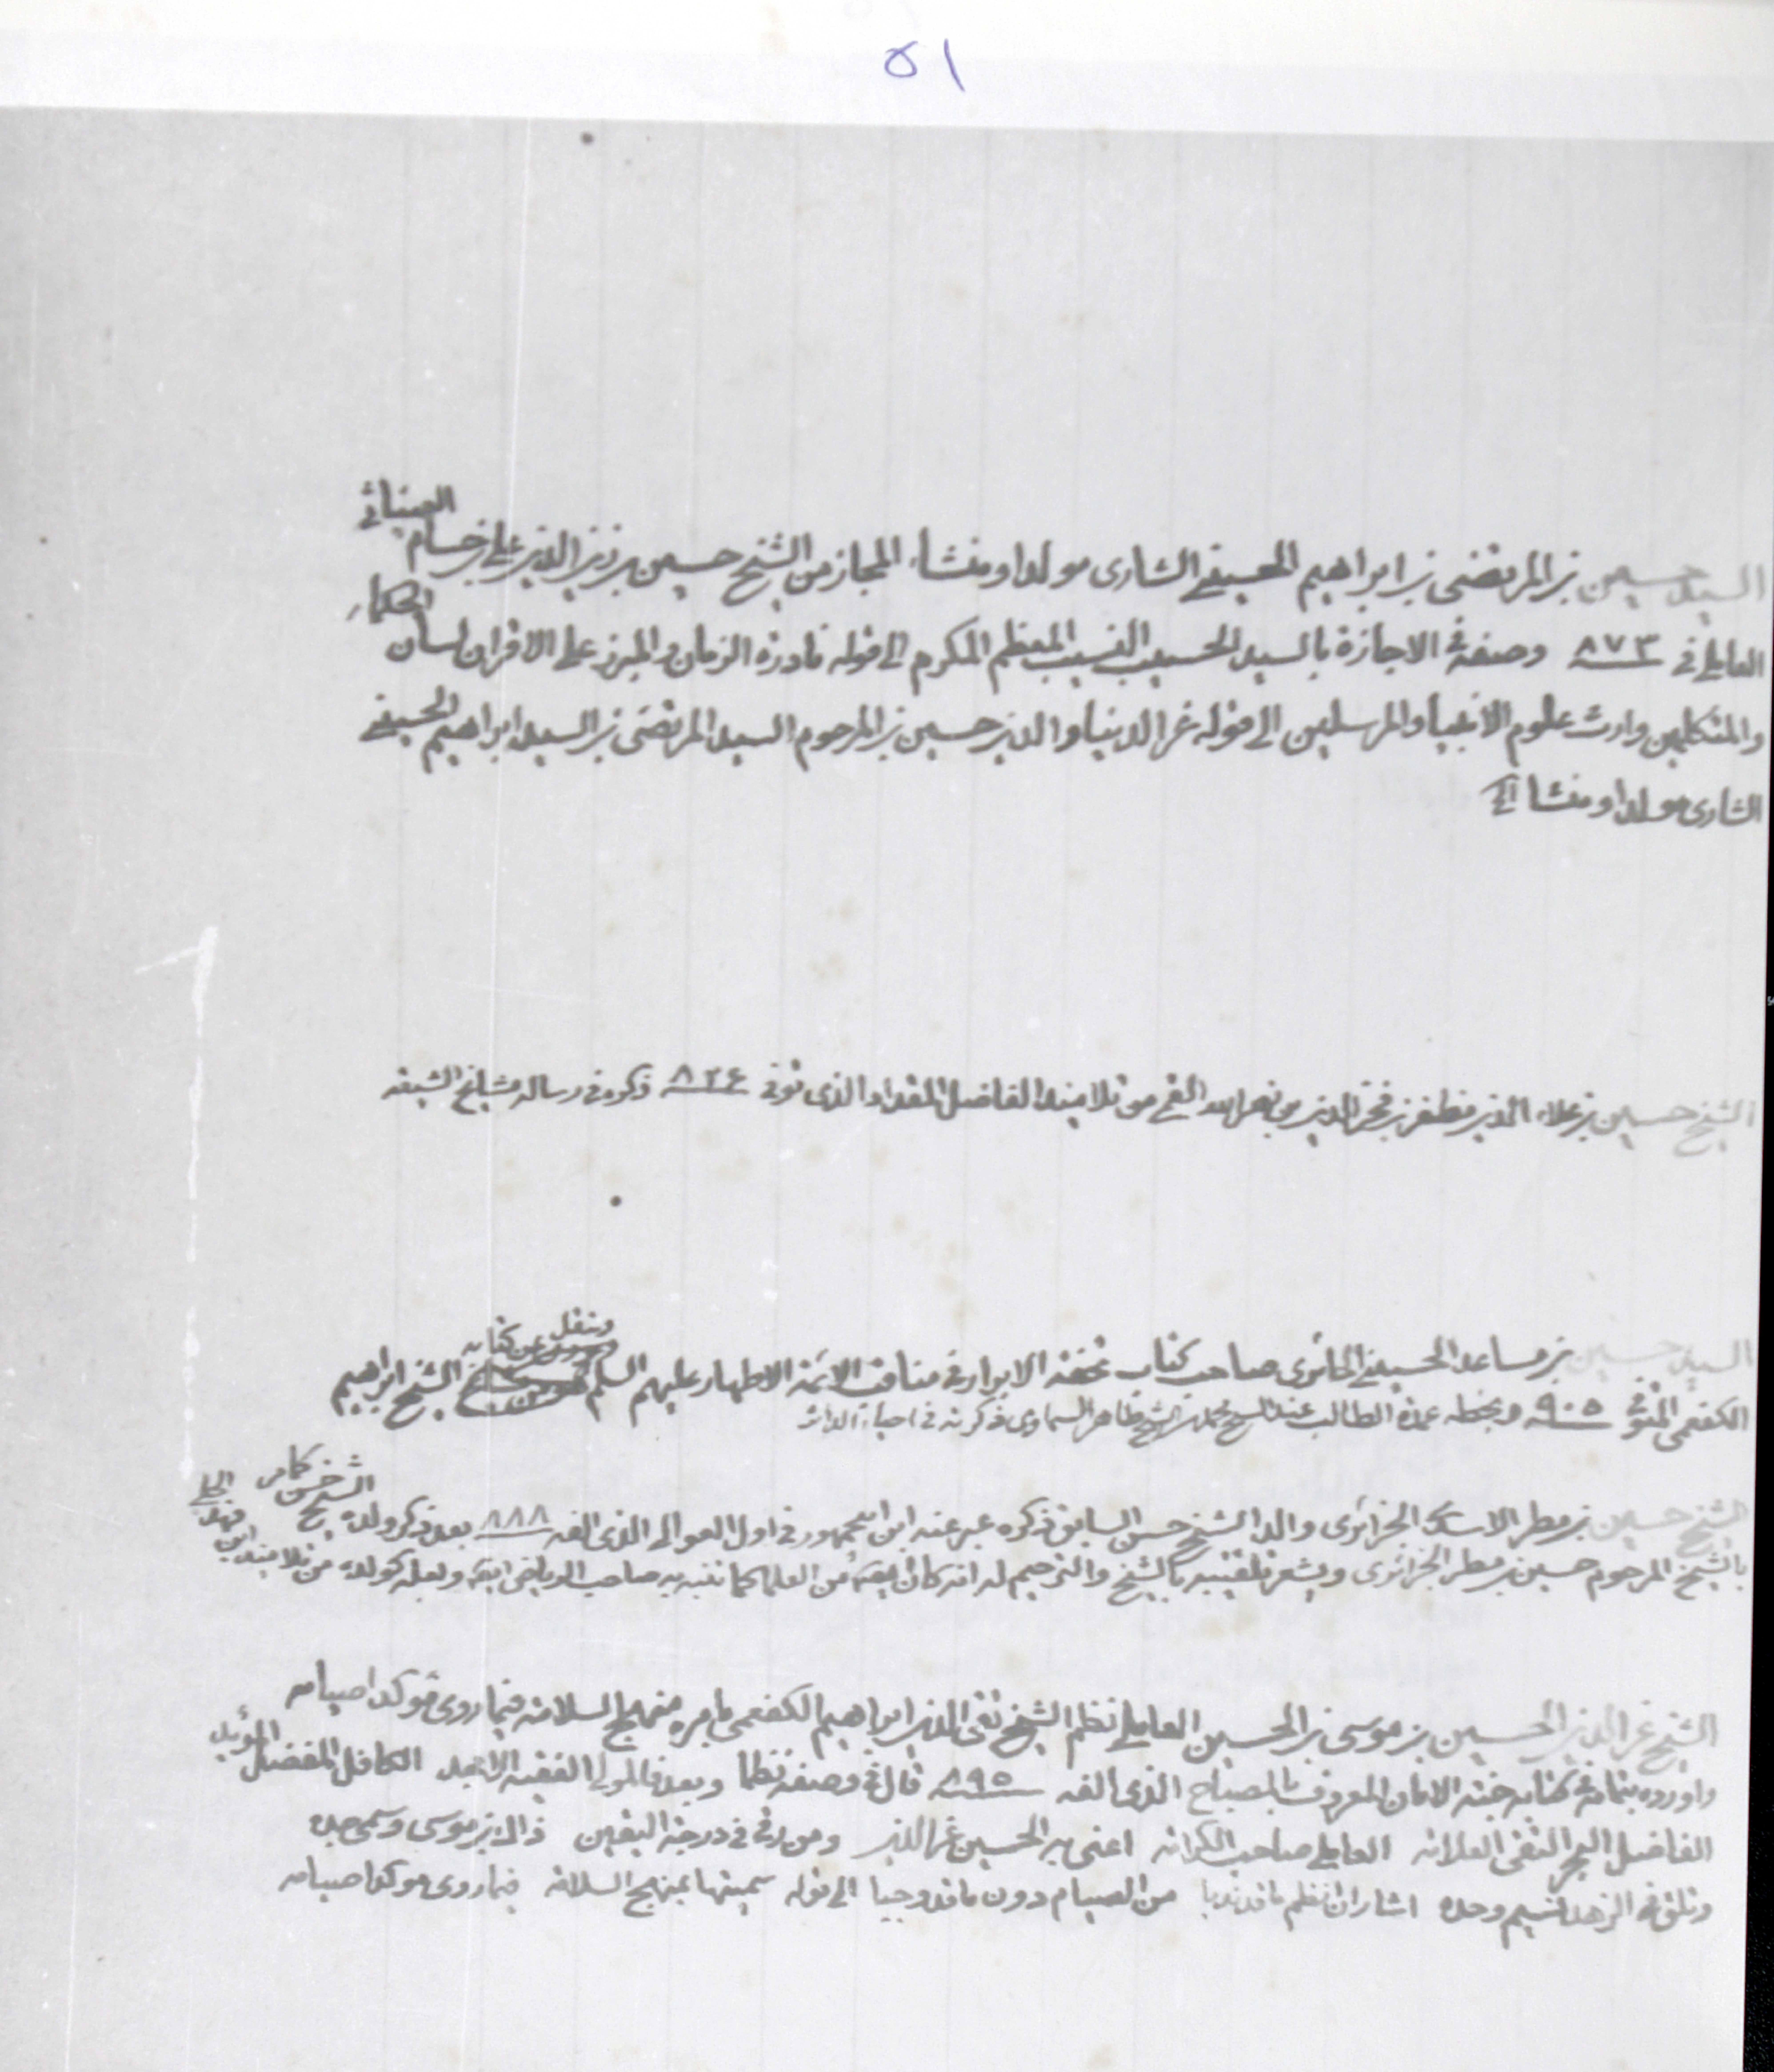 ٥١
السيد حسين بن المرتضى بن ابراهيم الحسيني الشارى مولدا ومنشأ المجاز من الشيخ حسين بن زين الدين علي بن حسام العينياثي
العاملي في ٨٧٣ وصفه في الاجازة بالسيد الحسيب النسيب المعظم المكرم الى قوله نادرة الزمان والمبرز على الاقران لسان الحكماء
والمتكلمين وارث علوم الانبياء والمرسلين الى قوله عز الدنيا والدين حسين بن المرحوم السيد المرتضى بن السيد ابراهيم الحسيني
الشارى مولدا ومنشأ الخ
الشيخ حسين بن علاء الدين مظفر بن فخر الدين بن نصر الله القمي من تلاميذ الفاضل المقداد الذى توفى ٨٢٦ ذكره في رسالة مشايخ الشيعة
السيد حسين بن مساعد الحسيني الحائرى صاحب كتاب تحفة الابرار في مناقب الائمة الاطهار عليهم السلم وينقل عن كتابه الشيخ ابراهيم
الكفعمي المتوفى ٩٠٥ وبخطه عمدة الطالب عند الشيخ محمد بن الشيخ طاهر السماوى ذكرته في احياء الداثر
الشيخ حسين بن مطر الاسدى الجزائرى والد الشيخ حسن السابق ذكره عبر عنه ابن ابي جمهور في اول العوالى الذى الفه ٨٨٨ بعد ذكر ولده الشيخ حسن كامر
بالشيخ المرحوم حسين بن مطر الجزائرى ويشعر تلقيبه بالشيخ والترحيم له انه كان ايضا من العلماء كما تنبه به صاحب الرياض ايضا ولعله كولده من تلاميذ ابن فهد الحلي
الشيخ عز الدين الحسين بن موسى بن الحسين العاملي نظم الشيخ تقى الدين ابراهيم الكفعمى بامره منهاج السلامة فيما روى مؤكدا صيامه
واورده بتمامه في كتابه جنة الامان المعروف بالمصباح الذى الفه ٨٩٥ قال في وصفه نظما وبعد فالمولى الفقيه الامجد الكامل المفضل المؤيد
الفاضل البحر التقى العلامه العاملي صاحب الكرامه اعنى به الحسين عز الدين ومن رقى في درجة اليقين ذاك بن موسى وسمى جده
وتلق في الزهد نسيج وحده اشار ان انظم ما قد ندبا من الصيام دون ما قد وجبا الى قوله سميتها بمنهج السلامه فيما روى مؤكدا صيامه